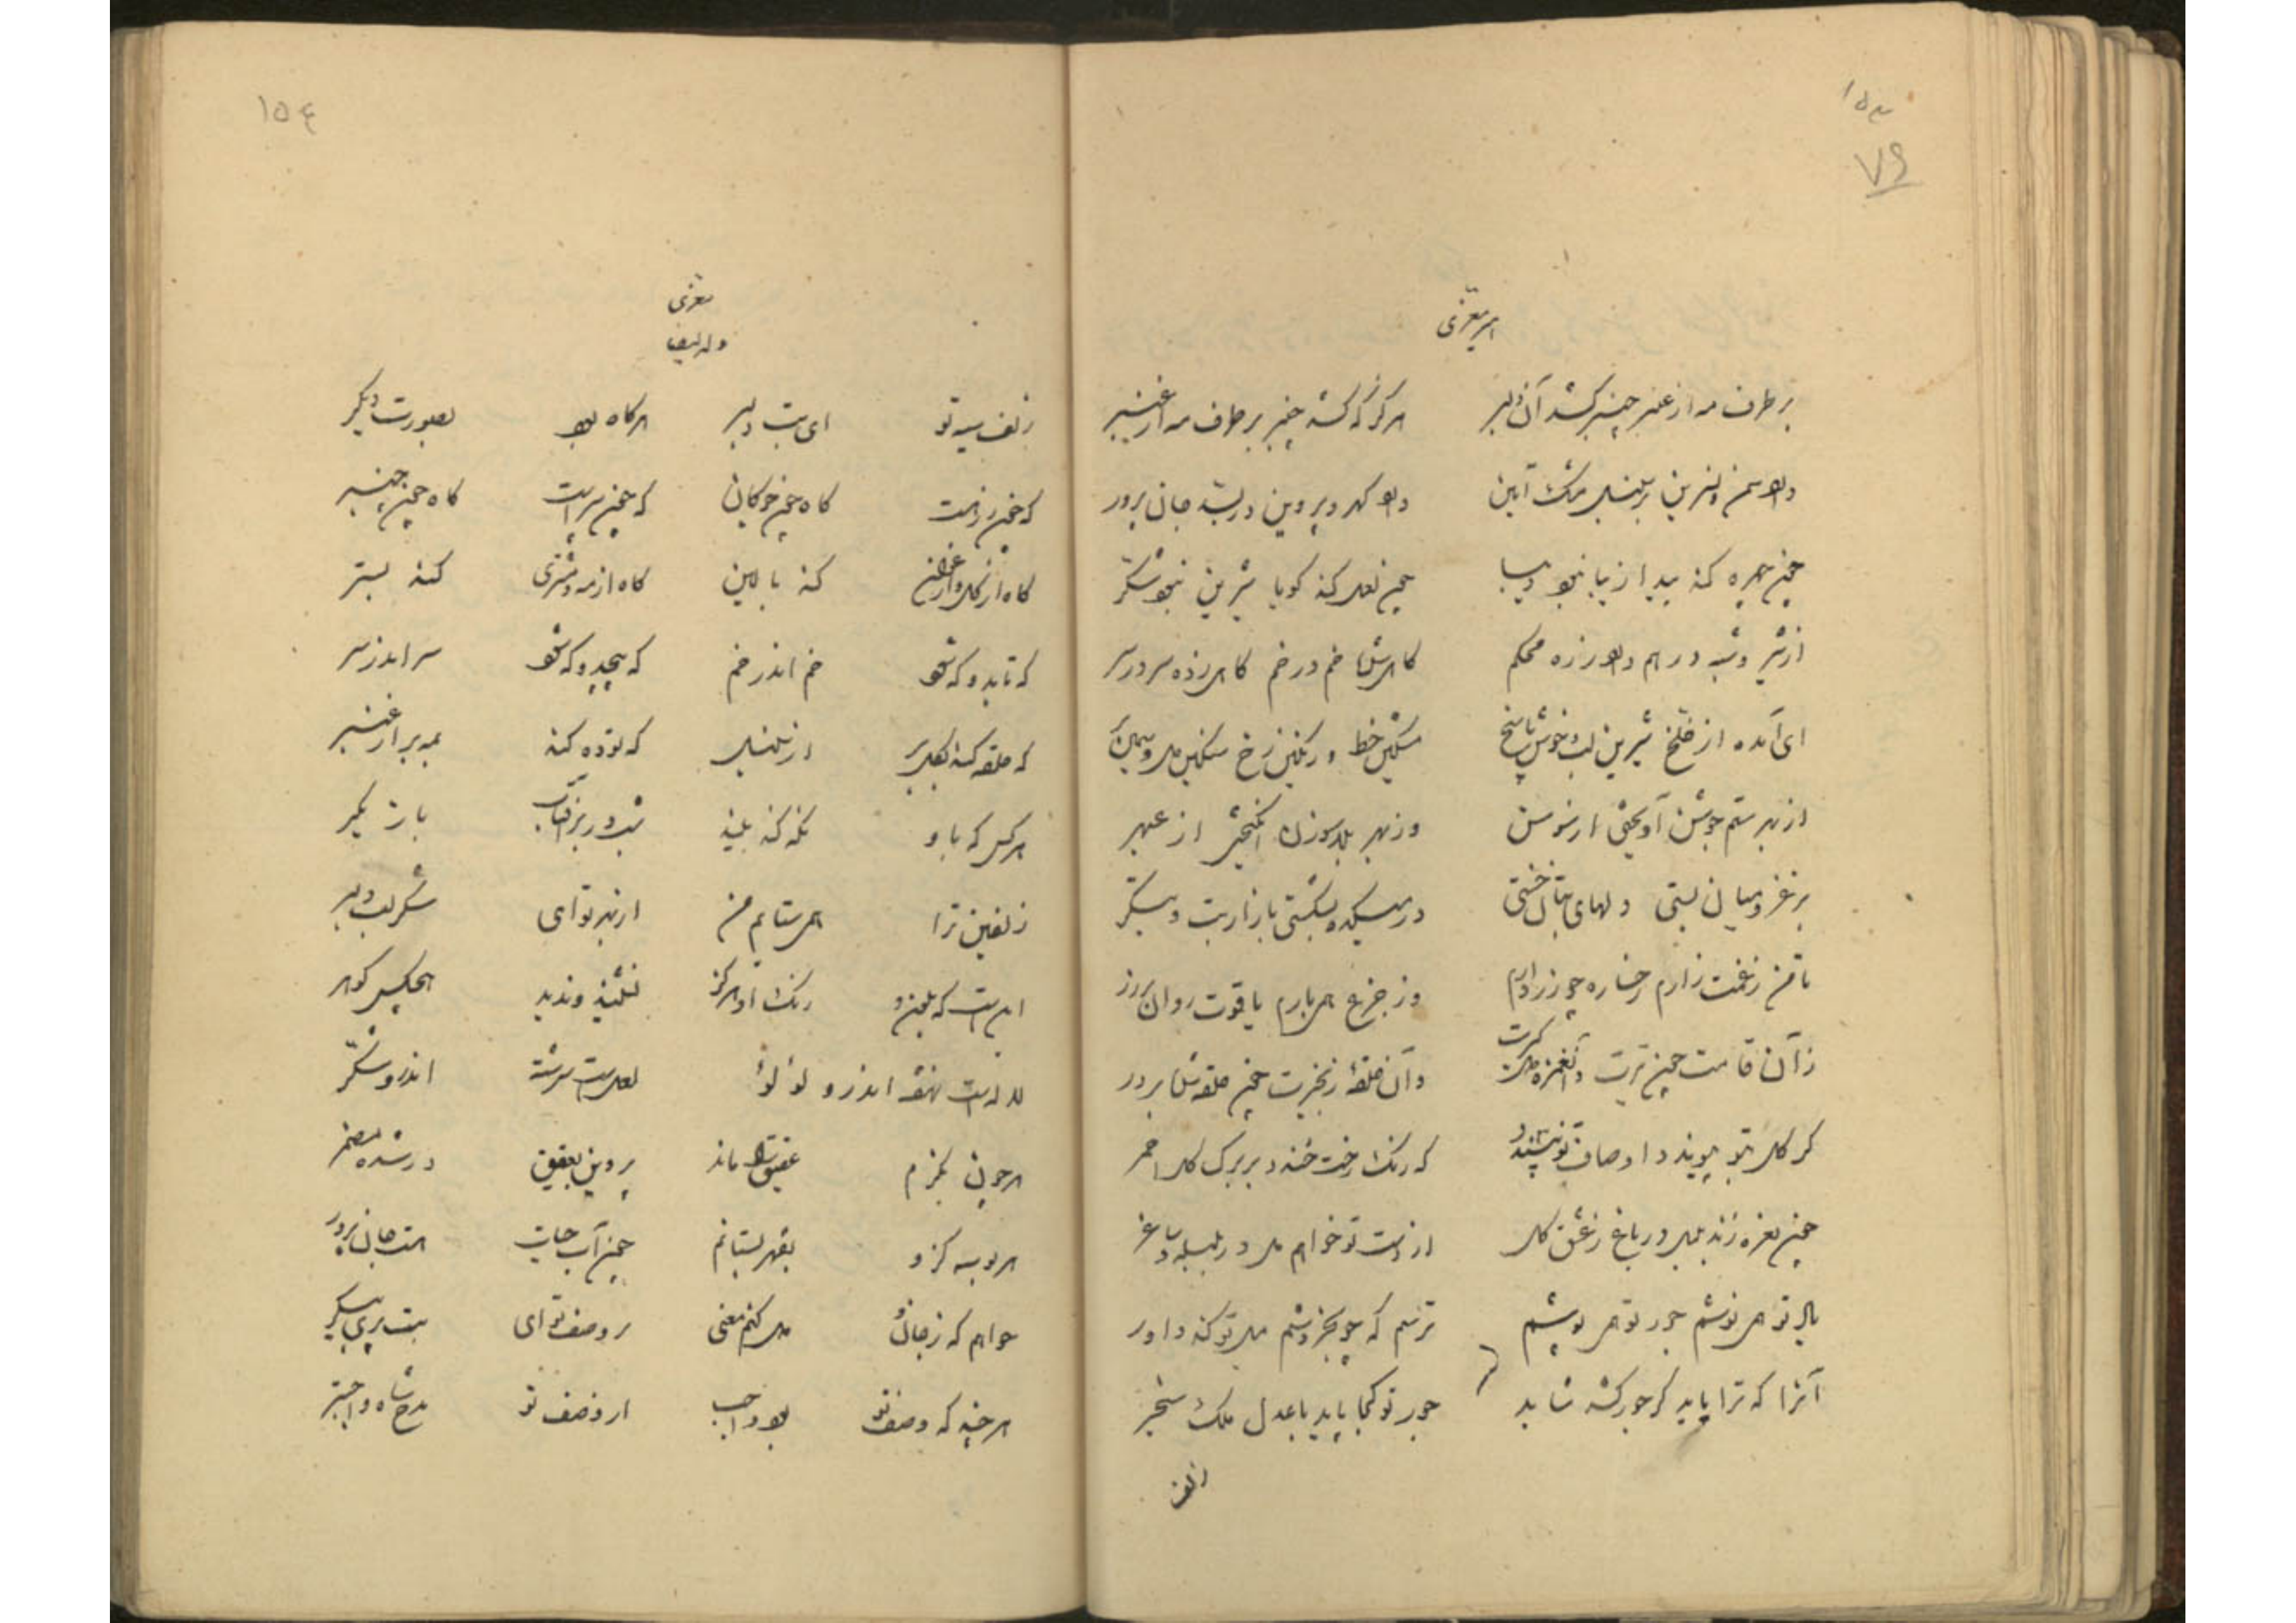 ۱۵۳
۷۹
امیر معزی
بر طرف مه از عنبر چنبر کشد آن دلبر هرگز که کشد چنبر بر طرف مه از عنبر
دارد سمن و نسرین در مشک آیین دارد گهر و پروین در بسد جان پرور
چون چهره کند پیدا زیبا نبود دیبا چون لعل کند گویا شیرین نبود شکر
از شیر و شبه درهم دارد زره محکم گاهی شکند خم در خم گاهی زده سر در سر
ای آمده از خلخ شیرین لب و خوش پاسخ مشکین خط و رنگین رخ سنگین دل و سیمین بر
از بهر ستم جوشن آویختی از سوسن وز بهر بلا سوزن انگیختی از عبهر
بر غمزه میان بستی دلهای بتان خستی در میکده بشکستی بازار بت و بتگر
تا من ز غمت زارم رخساره چو زر دارم وز جزع همی بارم یاقوت روان بر زر
زان قامت چون تیرت وان غمزه وان حلقه زنجیرت چون حلقه شدم بر در
گر گل بتو پیوندد اوصاف تو نپسندد که رنگ رخت خندد بر برگ گل احمر
چون نعره زند بلبل در باغ ز عشق گل از دست تو خواهم مل در بلبله و ساغر
با تو می نوشم جور تو همی پوشم ترسم که چو بخروشم میل تو کند داور
آنرا که ترا پاید گر جور کشد شاید جور تو کجا پاید با عدل ملک سنجر
زلف
۱۵۴
معزی
وله ایضا
زلف سیه تو ای بت دلبر هر گاه بود بصورت دیگر
که چون زرهست گاه چون چوگان که چون سپرست گاه چون چنبر
گاه از گل و ارغوان کند بالین گاه از مه و مشتری کند بستر
که تابد و که شود خم اندر خم که پیچد و که شود سر اندر سر
که حلقه کند بلاله بر از که توده کند بمه بر از عنبر
هر کس که باو نگه کند بیند شب در بر آفتاب بازیگر
زلفین ترا همی ستایم من از بهر تو ای شکر لب دلبر
رنگ او هرگز نشنید و ندید هیچکس گوهر
لاله است نهفته اندرو لؤلؤ لعل است سرشته اندرو شکر
هر چون نگرم عقیق را ماند پروین بعقیق در شده مضمر
هر بوسه کزو بقهر بستانم چون آب حیات هست جان پرور
خواهم که ز جان و دل کنم معنی بر وصف تو ای بت پری پیکر
هر چند که وصف تو بود واجب از وصف تو مدح شاه واجبتر